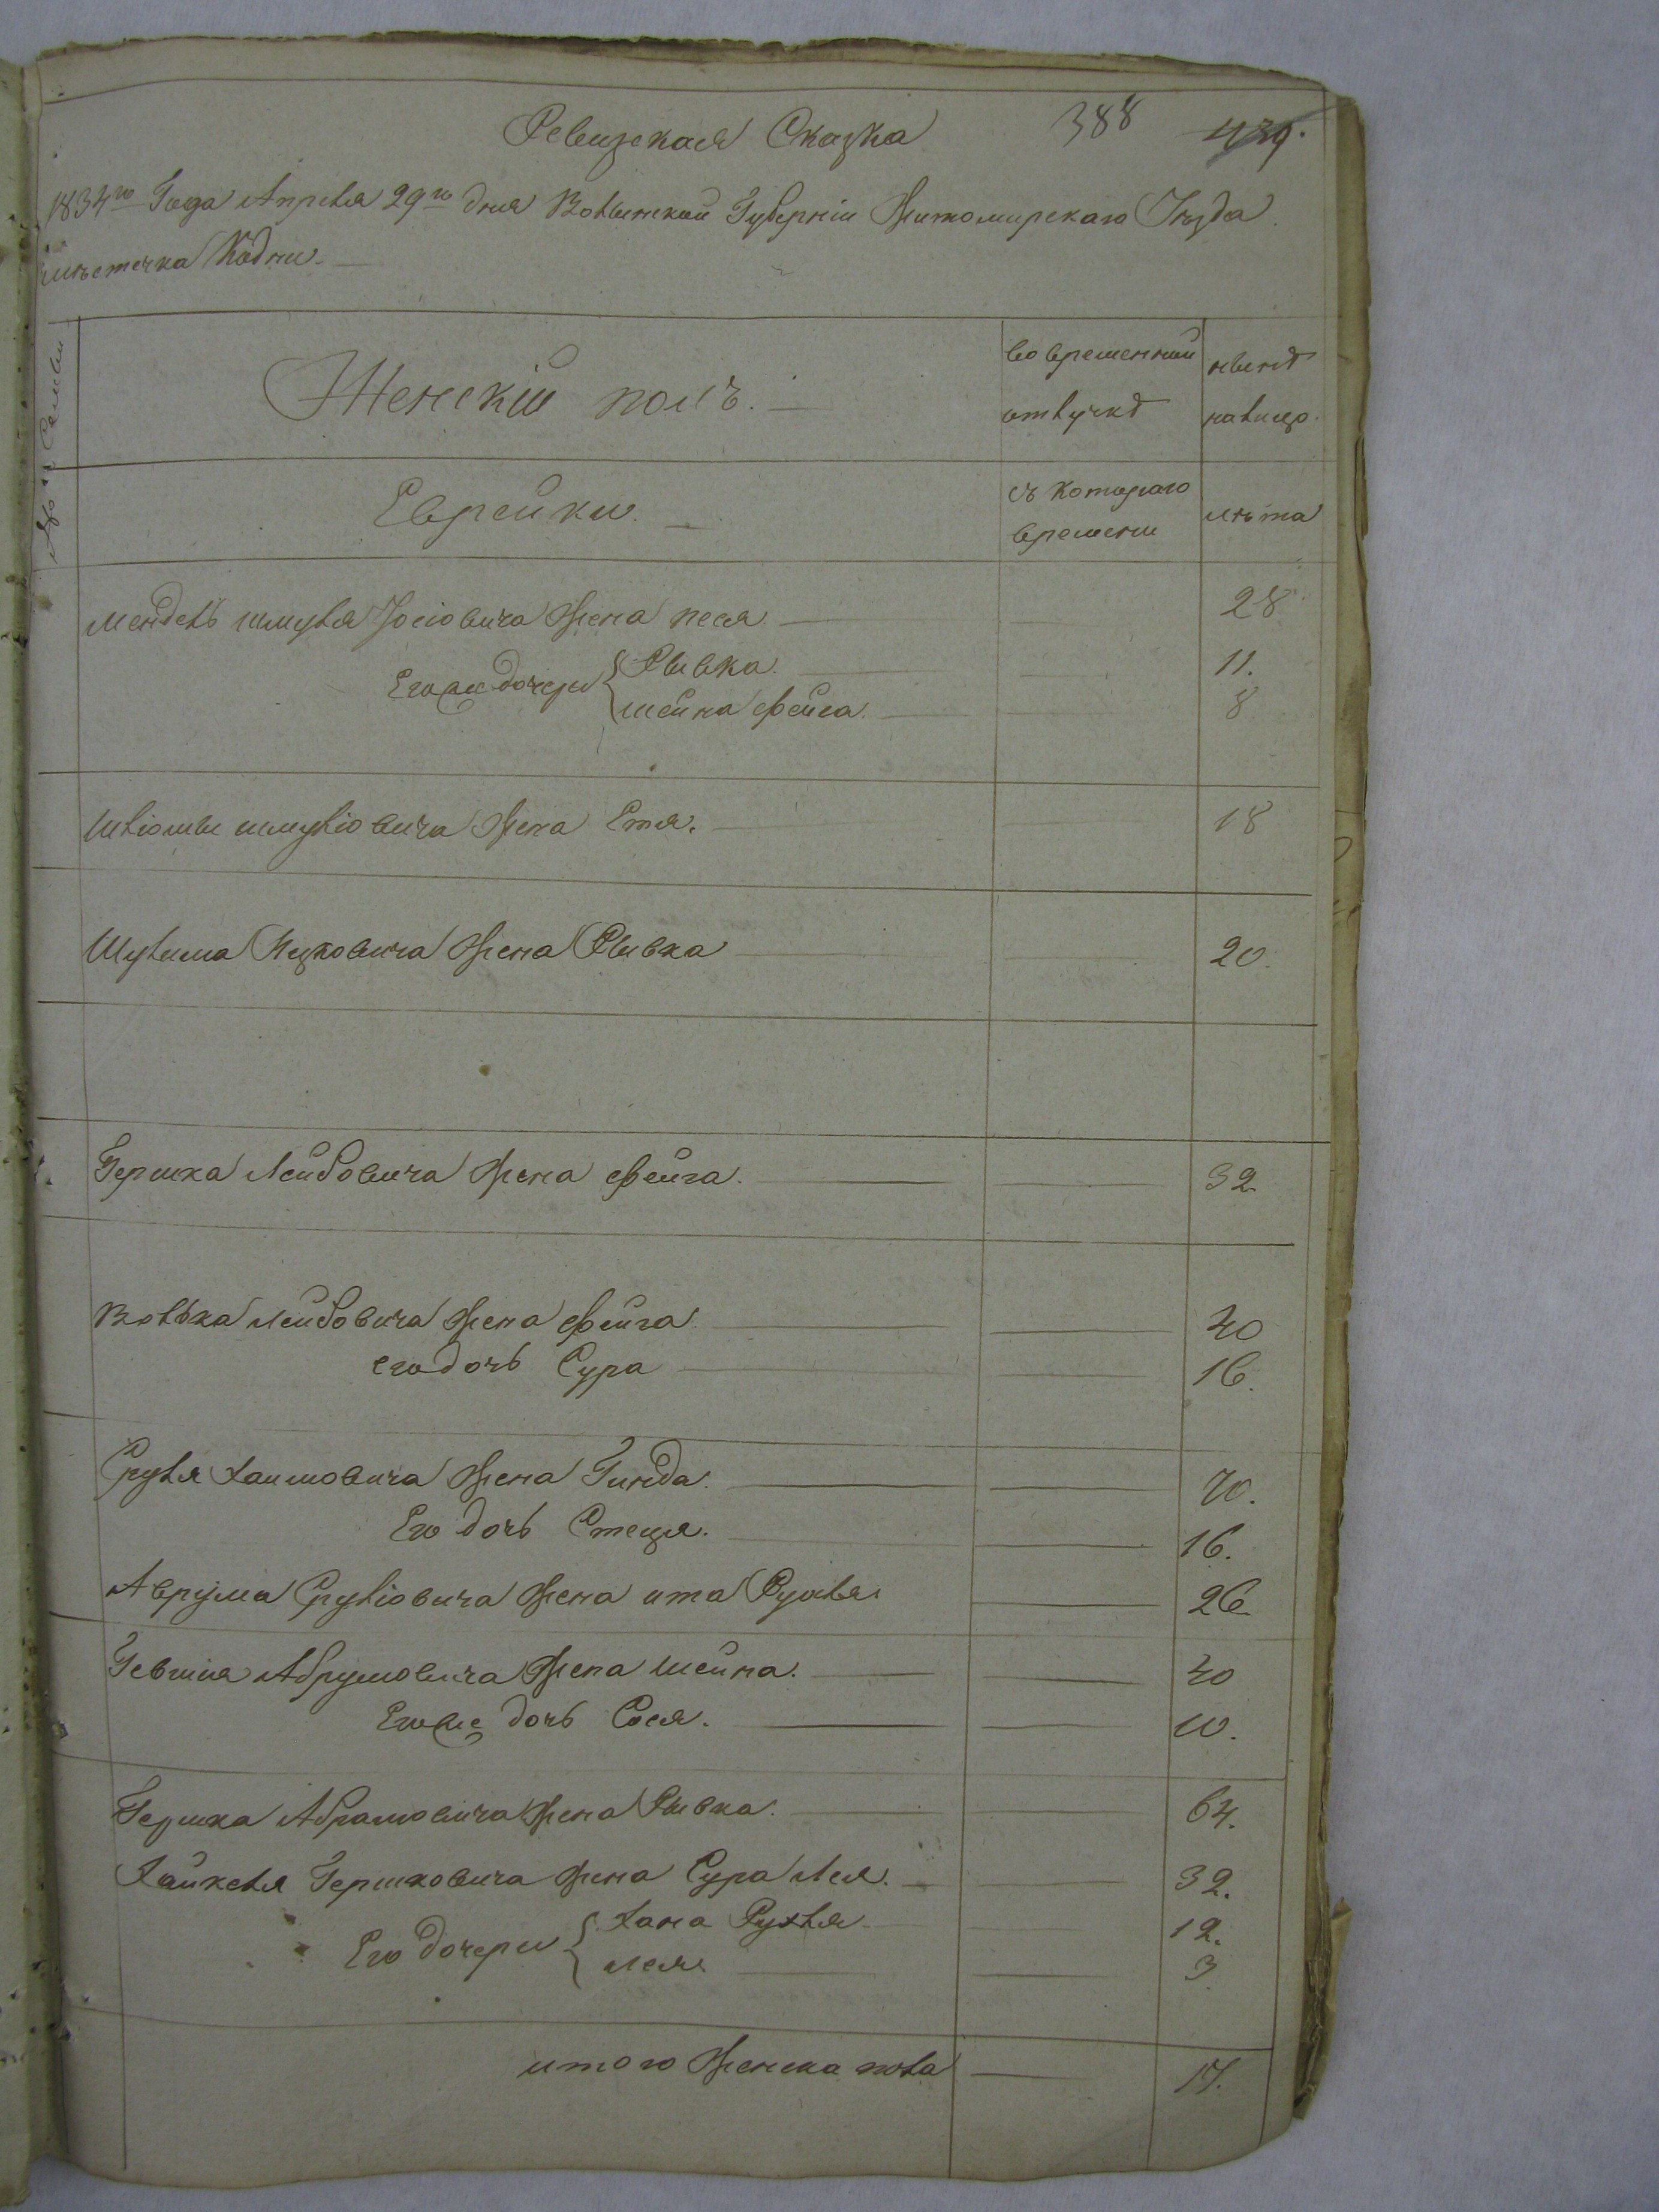 Ревизская Сказка 388 439.
1834го Года Апреля 29го дня Волынской Губернiи Житомирскаго Уѣзда
мѣстечка Кодни.
Семьи
Женскiй полъ.
во временной отлучкѣ
нынѣ налицо
Еврейки.
съ котораго времени
лѣта
Мендель Шмуля Iосiовича жена Песя 28
Его же дочери { Рывка 11.
Шейна Фейга 8
Шлiомы Шмулiовича жена Етя. 18
Шулима Ицковича жена Рывка 20.
Гершка Лейбовича жена Фейга. 32
Волька Лейбовича жена Фейга 40
его дочь Сура 16.
Сруля Хаимовича жена Гинда. 70.
Его дочь Стеця. 16.
Аврума Срулiовича жена Ита Рухля 26
Гевшия Абрумовича жена Шейна. 40
Его же дочь Сося. 10.
Гершка Абрамовича жена Рывка. 64.
Хайкеля Гершковича жена Сура Лея. 32.
Его дочери { Хана Рухля 12.
Лея 3
итого женска пола 17.